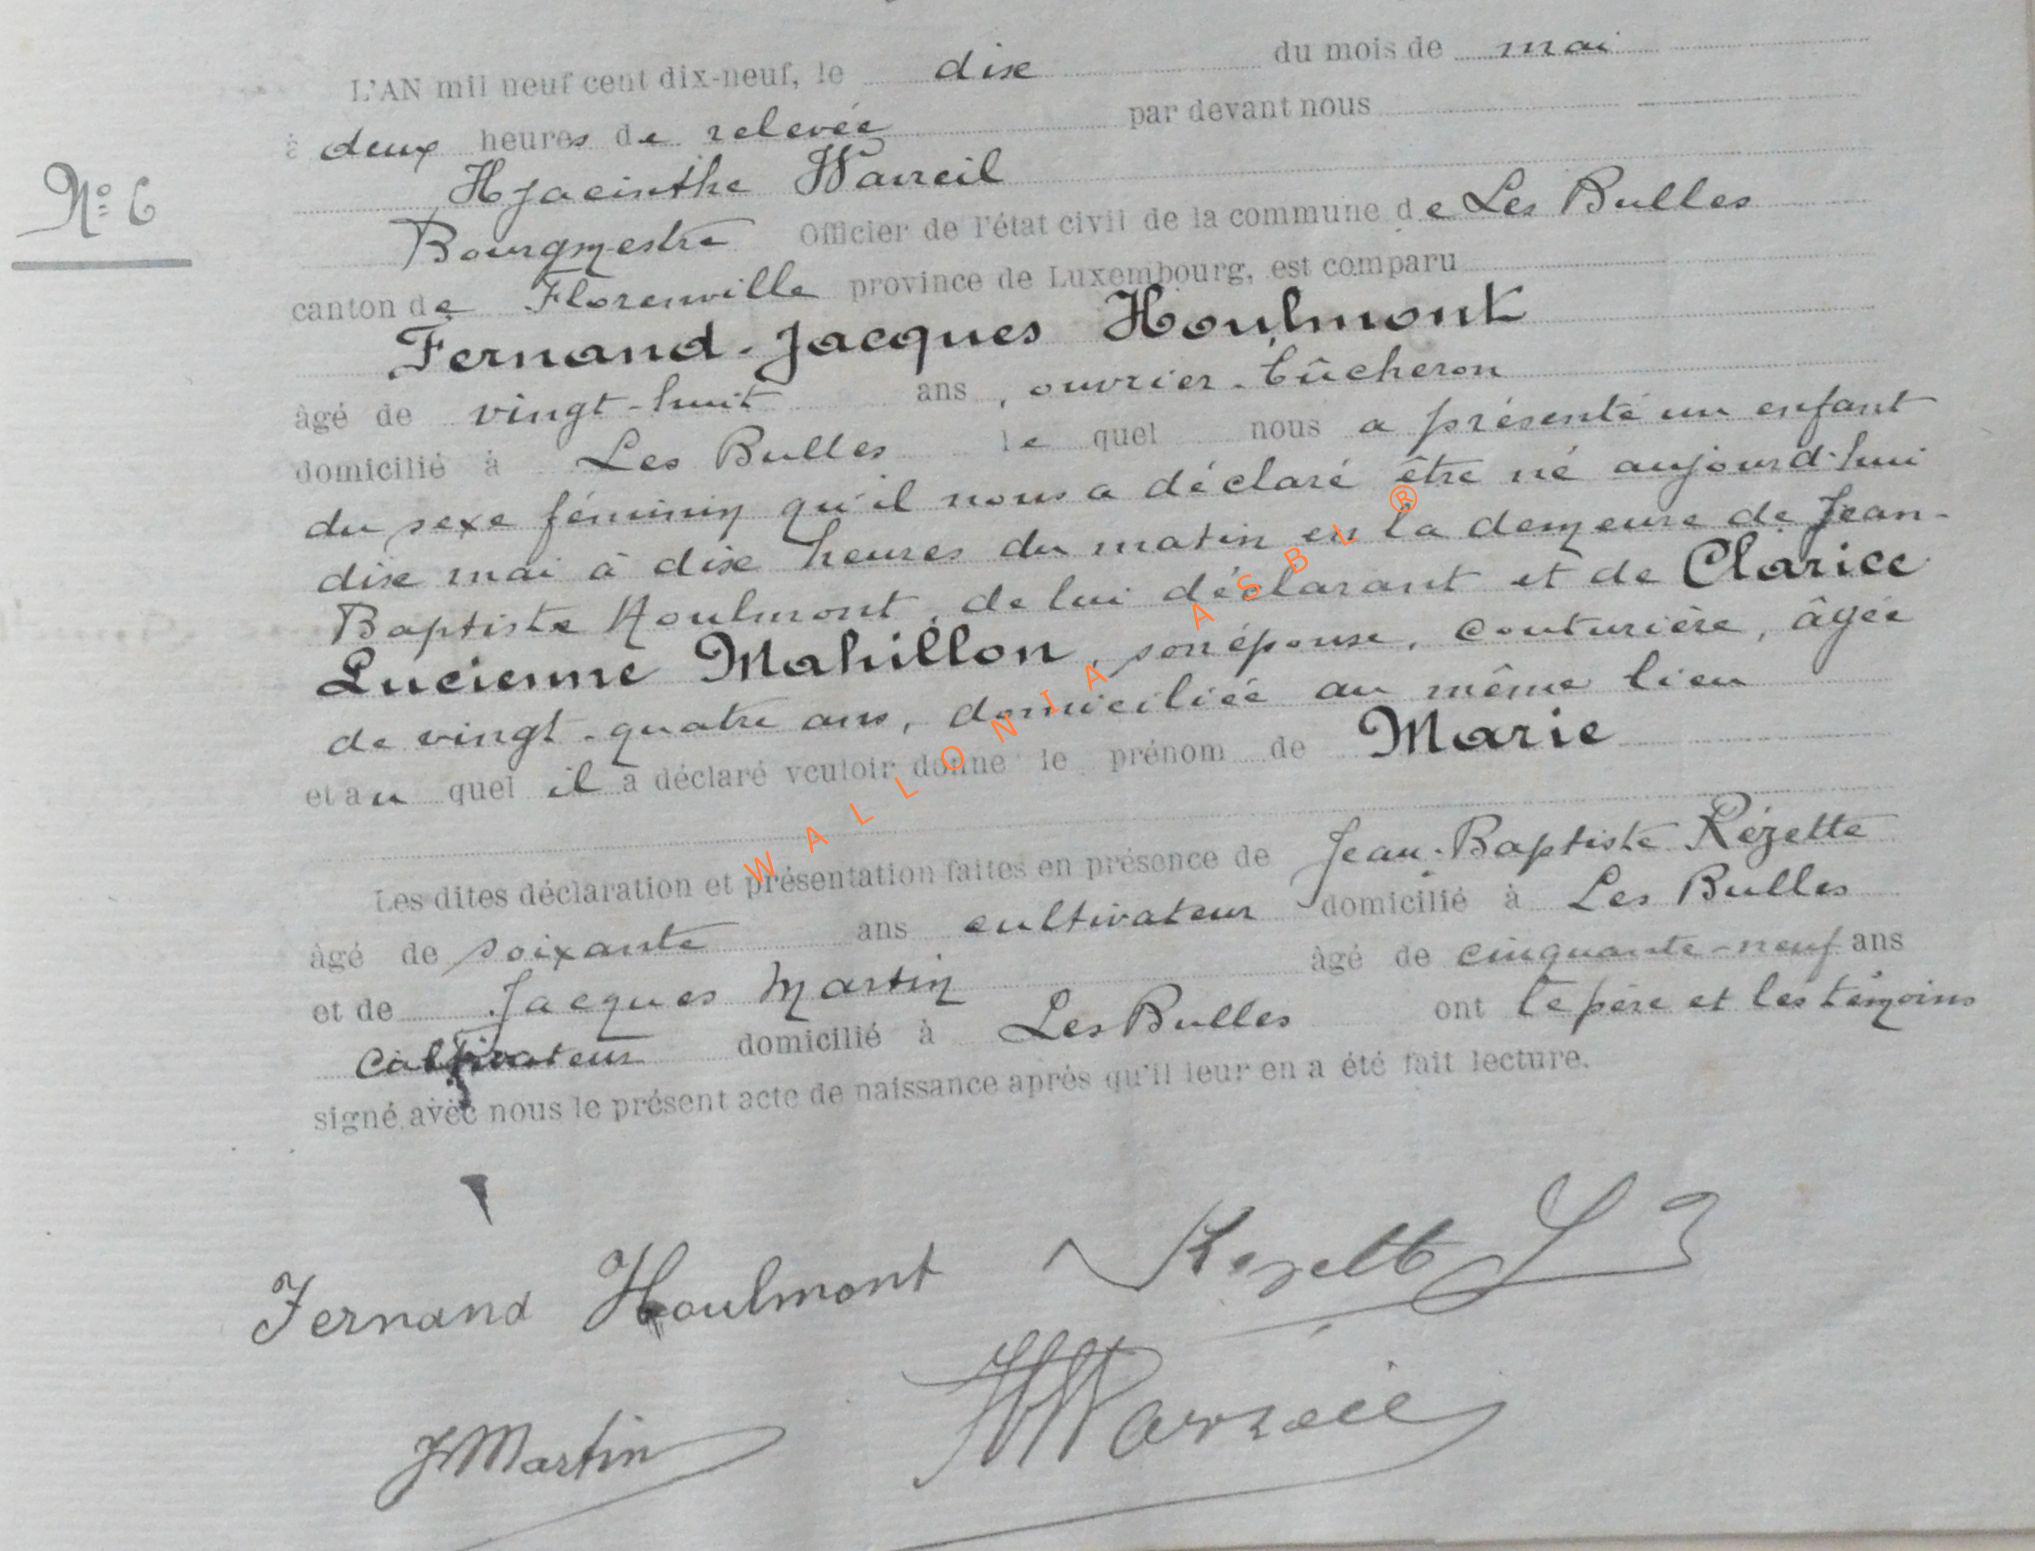 L'AN mil neuf cent dix-neuf, le dix du mois de mai
à deux heures de relevée par devant nous
Hyacinthe Warreil
Nº 6
Bourgmestre Officier de l'état civil de la commune de Les Bulles
canton de Florenville province de Luxembourg, est comparu
Fernand-Jacques Houlmont
âgé de vingt-huit ans, ouvrier-bûcheron
domicilié à Les Bulles lequel nous a présenté un enfant
du sexe féminin qu'il nous a déclaré être né aujourd'hui
dix mai à dix heures du matin en la demeure de Jean-
Baptiste Houlmont, de lui déclarant et de Clarice
Lucienne Mahillon, son épouse, couturière, âgée
de vingt-quatre ans, domiciliée au même lieu
et au quel il a déclaré vouloir donne le prénom de Marie
Les dites déclaration et présentation faites en présence de Jean-Baptiste Rézette
âgé de soixante ans cultivateur domicilié à Les Bulles
et de Jacques Martin âgé de cinquante-neuf ans
cultivateur domicilié à Les Bulles ont le père et les témoins
signé avec nous le présent acte de naissance après qu'il leur en a été fait lecture.
Fernand Houlmont Rezette
J Martin H Warreil
WALLONIA ASBL ®